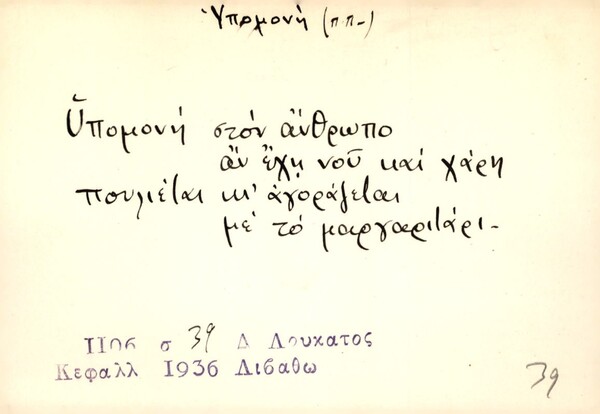 Ὑπομονή (π.π.-)
Ὑπομονή στόν ἄνθρωπο
ἄν ἔχῃ νοῦ καί χάρη
πουλιέται κι' ἀγοράζεται
μέ τό μαργαριτάρι-
1106 σ 39 Δ Λουκατος
Κεφαλλ 1936 Λιβαθω
39